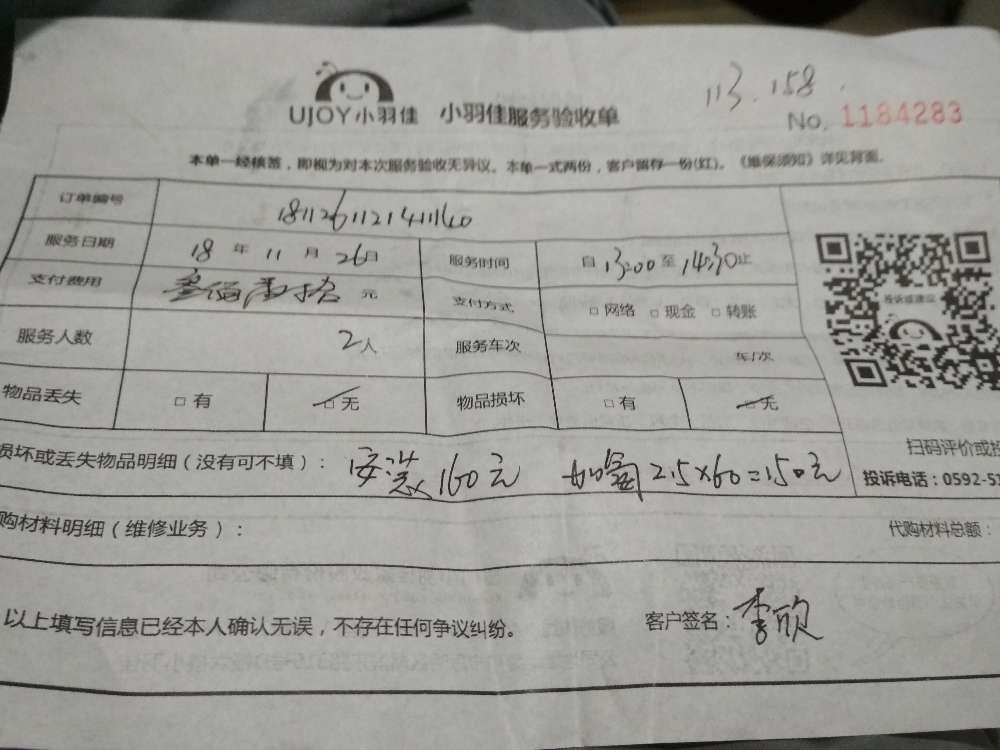 113.158.
UJOY小羽佳 小羽佳服务验收单
No. 1184283
本单一经核签，即视为对本次服务验收无异议。本单一式两份，客户留存一份(红)。《维保须知》详见背面。
订单编号
服务日期 18 年 11 月 26日 服务时间 自 13:00 至 14:30 止
支付费用 叁佰壹拾 元 支付方式 □ 网络 □ 现金 □ 转账
服务人数 2人 服务车次 车/次
投诉或建议
物品丢失 □ 有 □ 无 物品损坏 □ 有 □ 无
扫码评价或投
损坏或丢失物品明细（没有可不填）： 安装160元 加氟2.5×60=150元
投诉电话：0592-51
购材料明细（维修业务）： 代购材料总额：
以上填写信息已经本人确认无误，不存在任何争议纠纷。 客户签名：李欣